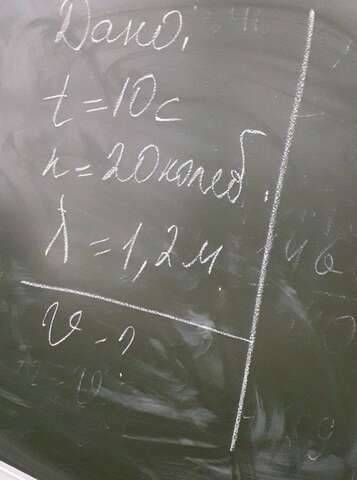 Дано:
t=10с
n=20колеб.
λ=1,2м
υ-?